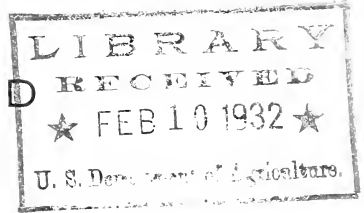 LIBRARY
RECEIVED
D
★ FEB 10 1932 ★
U. S. Department of Agriculture.